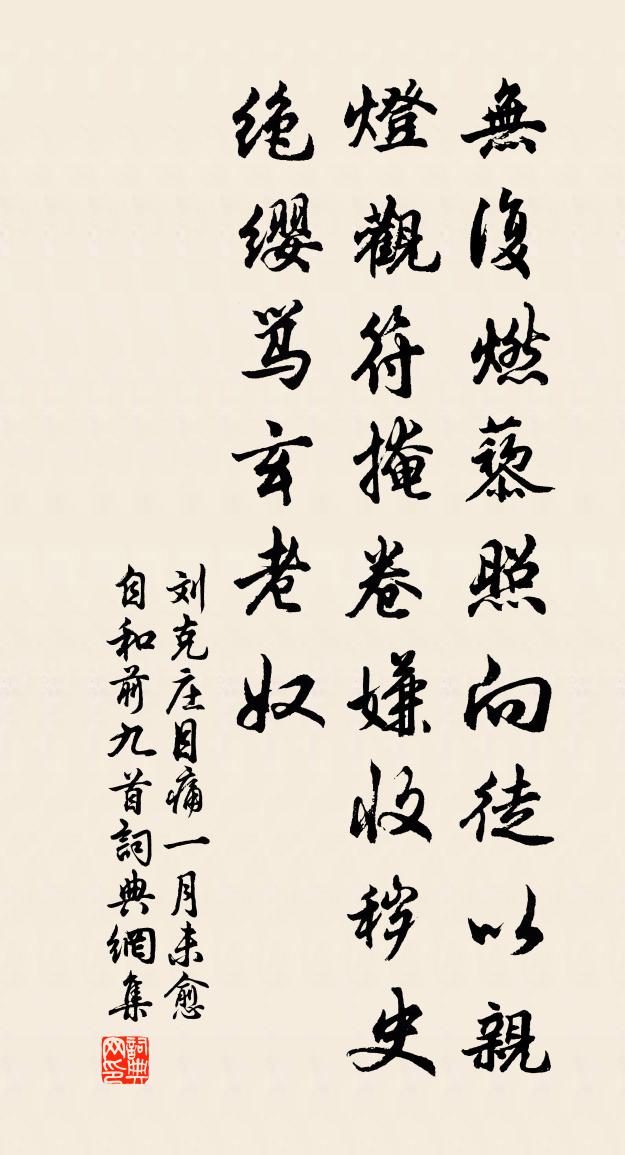 無復燃藜照向徒以親
燈觀符掩卷嫌收秽史
绝缨骂玄老奴
刘克庄目痛一月未愈
自和前九首詞典網集
詞典
网印